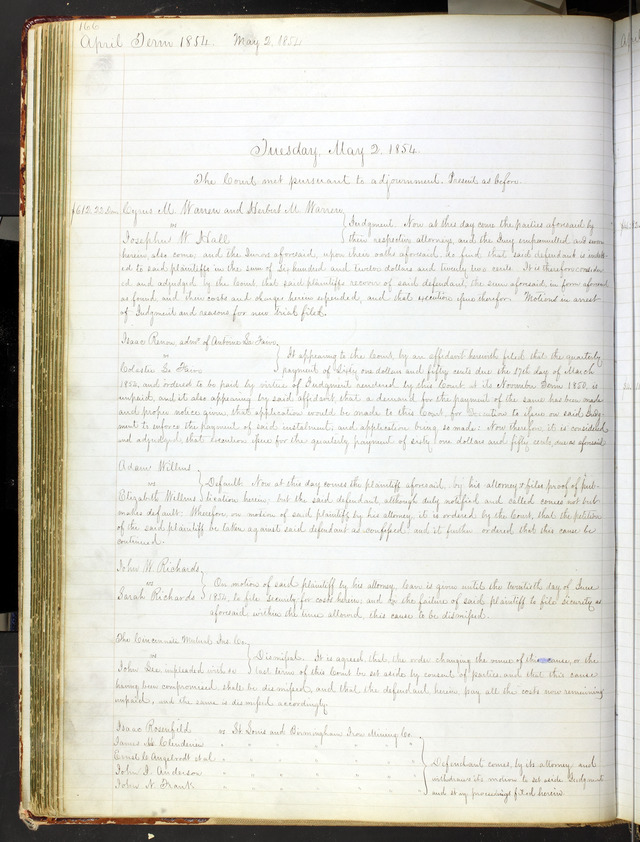 166
April Term 1854. May 2. 1854
Tuesday, May 2. 1854.
The Court met pursuant to adjournment. Present as before.
$612.22 Cyrus M. Warren and Herbert M. Warren
vs
Josephus W. Hall
Judgment. Now at this day come the parties aforesaid by
their respective attorneys, and the Jury empannelled and sworn
herein, also come, and the Jurors aforesaid, upon their oaths aforesaid, do find that said defendant is indebt-
ed to said plaintiffs in the sum of Six hundred and twelve dollars and twenty two cents. It is therefore consider-
ed and adjudged by the Court that said plaintiffs recover of said defendant, the sum aforesaid, in form aforesaid
as found, and their costs and charges herein expended, and that execution issue therefor. Motions in arrest
of Judgment and reasons for new trial filed.
Isaac Renou, admr. of Antoine La Faivre,
vs
Celestie La Faivre
It appearing to the Court, by an affidavit herewith filed that the quarterly
payment of Sixty one dollars and fifty cents due the 17th day of March
1854, and ordered to be paid by virtue of Judgment rendered by this Court at its November Term 1850, is
unpaid, and it also appearing by said affidavit, that a demand for the payment of the same has been made
and proper notice given, that application would be made to this Court, for Execution to issue on said Judg-
ment to enforce the payment of said instalment; and application being so made: Now therefore, it is considered
and adjudged that execution issue for the quarterly payment of sixty one dollars and fifty cents, due as aforesaid.
Adam Willms,
vs
Elizabeth Willms
Default. Now at this day comes the plaintiff aforesaid, by his attorney & files proof of pub-
lication herein; but the said defendant, although duly notified and called comes not but
makes default. Wherefore, on motion of said plaintiff by his attorney, it is ordered by the Court, that the petition
of the said plaintiff be taken against said defendant as confessed, and it further ordered that this cause be
continued.
John W. Richards,
vs
Sarah Richards
On motion of said plaintiff by his attorney, leave is given until the twentieth day of June
1854, to file Security for costs herein; and on the failure of said plaintiff to file Security as
aforesaid within the time allowed, this cause to be dismissed.
The Cincinnati Mutual Ins. Co.
vs
John Gee impleaded with
Dismissal. It is agreed, that the order changing the venue of this cause, at the
last term of this Court be set aside by consent of parties, and that this cause
having been compromised shall be dismissed, and that the defendant herein pay all the costs now remaining
unpaid, and the same is dismissed accordingly.
Isaac Rosenfeld vs St Louis and Birmingham Iron Mining Co.
James H. Clendenin " " " " "
Ernst C Angelrodt et al " " " " "
John J. Anderson " " " " "
John N. Frank " " " " "
Defendant comes, by its attorney and
withdraws its motion to set aside Judgment
and stay proceedings filed herein.